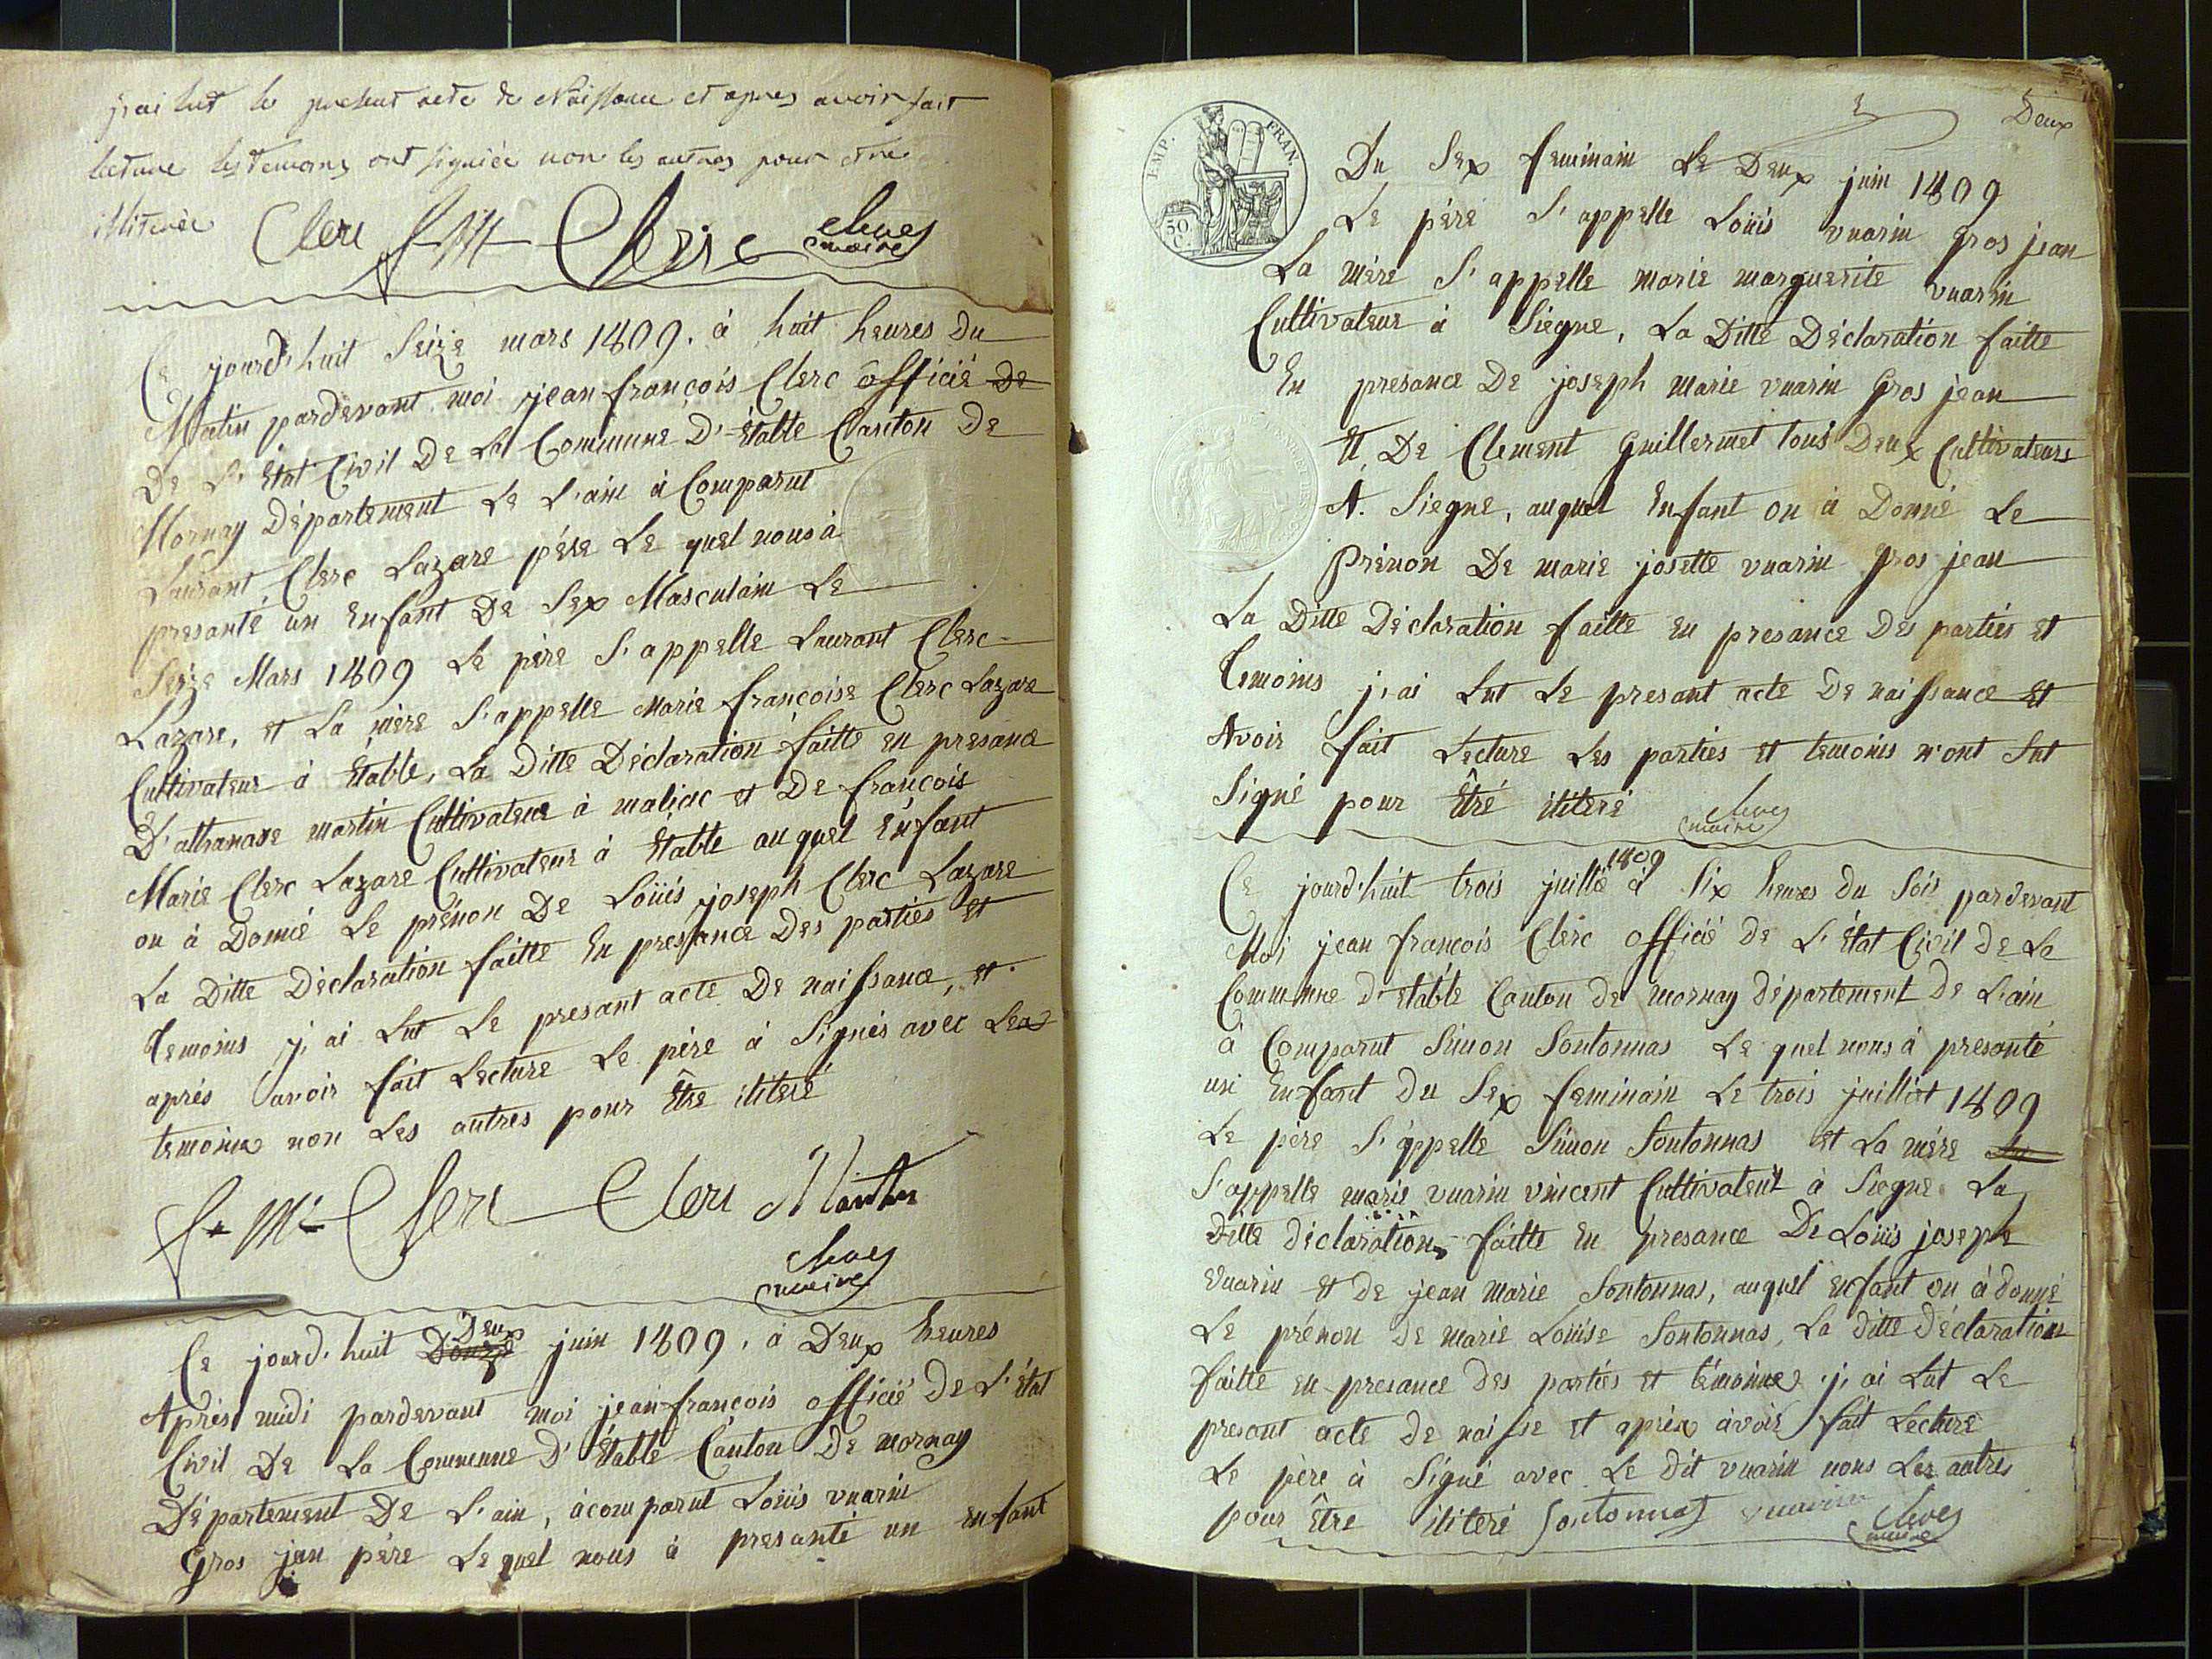 j'ai lut le presant acte de Naissance et apres avoir fait
lecture les temoins ont signiée non les autres pour etre
illiterée Clerc f M Clerc
maire
Ce jourd'huit Seize mars 1809. à huit heures Du
Matin pardevant moi jean françois Clerc officié De
De L'état Civil De La Commune D'Étable Canton De
Mornay Département De L'ain à Comparut
Laurant Clerc Lazare pére Le quel nous à
presanté un Enfant De Sex Masculain Le
Seize Mars 1809 Le père S'appelle Laurant Clerc
Lazare, et La mère S'appelle Marie françoise Clerc Lazare
Cultivateur à Étable, La Ditte Déclaration faitte en presance
D'athanase martin Cultivateur à maliac et De françois
Marie Clerc Lazare Cultivateur à Étable au quel Enfant
on à Donné Le prénon De Loüis joseph Clerc Lazare
La Ditte Déclaration faitte En presance Des parties et
Temoins j'ai Lut Le presant acte De naissance, et
aprés avoir fait Lecture Le pére à Signés avec Les
temoins non Les autres pour Être ilitéré
f. M. Clerc Clerc Martin
maire
Ce jourd'huit Douze Deux juin 1809, à Deux heures
Aprés midi pardevant moi jean françois officié De L'état
Civil De La Commune D'Étable Canton De mornay
Département De L'ain, à comparut Loüis vuarin
Gros jan pére Le quel nous à presanté un enfant
Deux
IMP. FRAN.
50 C.
Du Sex feminain Le Deux juin 1809
Le pére S'appelle Loüis vuarin gros jean
La mére S'appelle marie marguerite vuarin
Cultivateur à Siegne, La Ditte Déclaration faitte
En presance De joseph marie vuarin Gros jean
Et De Clement Guillermet tous Deux Cultivateurs
A Siegne, auquel Enfant on à Donné Le
Prénon De marie josette vuarin gros jean
La Ditte Déclaration faitte en presance Des parties et
Temoins j'ai Lut Le presant acte De naissance Et
Avoir fait Lecture Les parties et temoins n'ont Sut
Signé pour Êtré ilitéré
maire
Ce jourd'huit trois juillé 1809 à Six heures du Soir pardevant
Moi jean francois Clerc officié de L'État Civil de La
Commune d'étable Canton de mornay département De L'ain
à Comparut Simon Sontonnas Le quel nous à presanté
un Enfant du Sex feminain Le trois juilliet 1809
Le pére S'appelle Simon Sontonnas et La mére
S'appelle marie vuarin vincent Cultivateur à Siegne La
Ditte déclaration faitte en presance De Loüis joseph
vuarin et de jean marie Sontonnas, auquel enfant on à donné
Le prénon de marie Loüise Sontonnas, La ditte déclaration
faitte en presance des partiés et témoins j'ai Lut Le
presant acte de naisse et aprés avoir fait Lecture
Le pére à Signé avec Le dit vuarin nons Les autres
pour Être ilitéré Sontonnas vuarin
maire